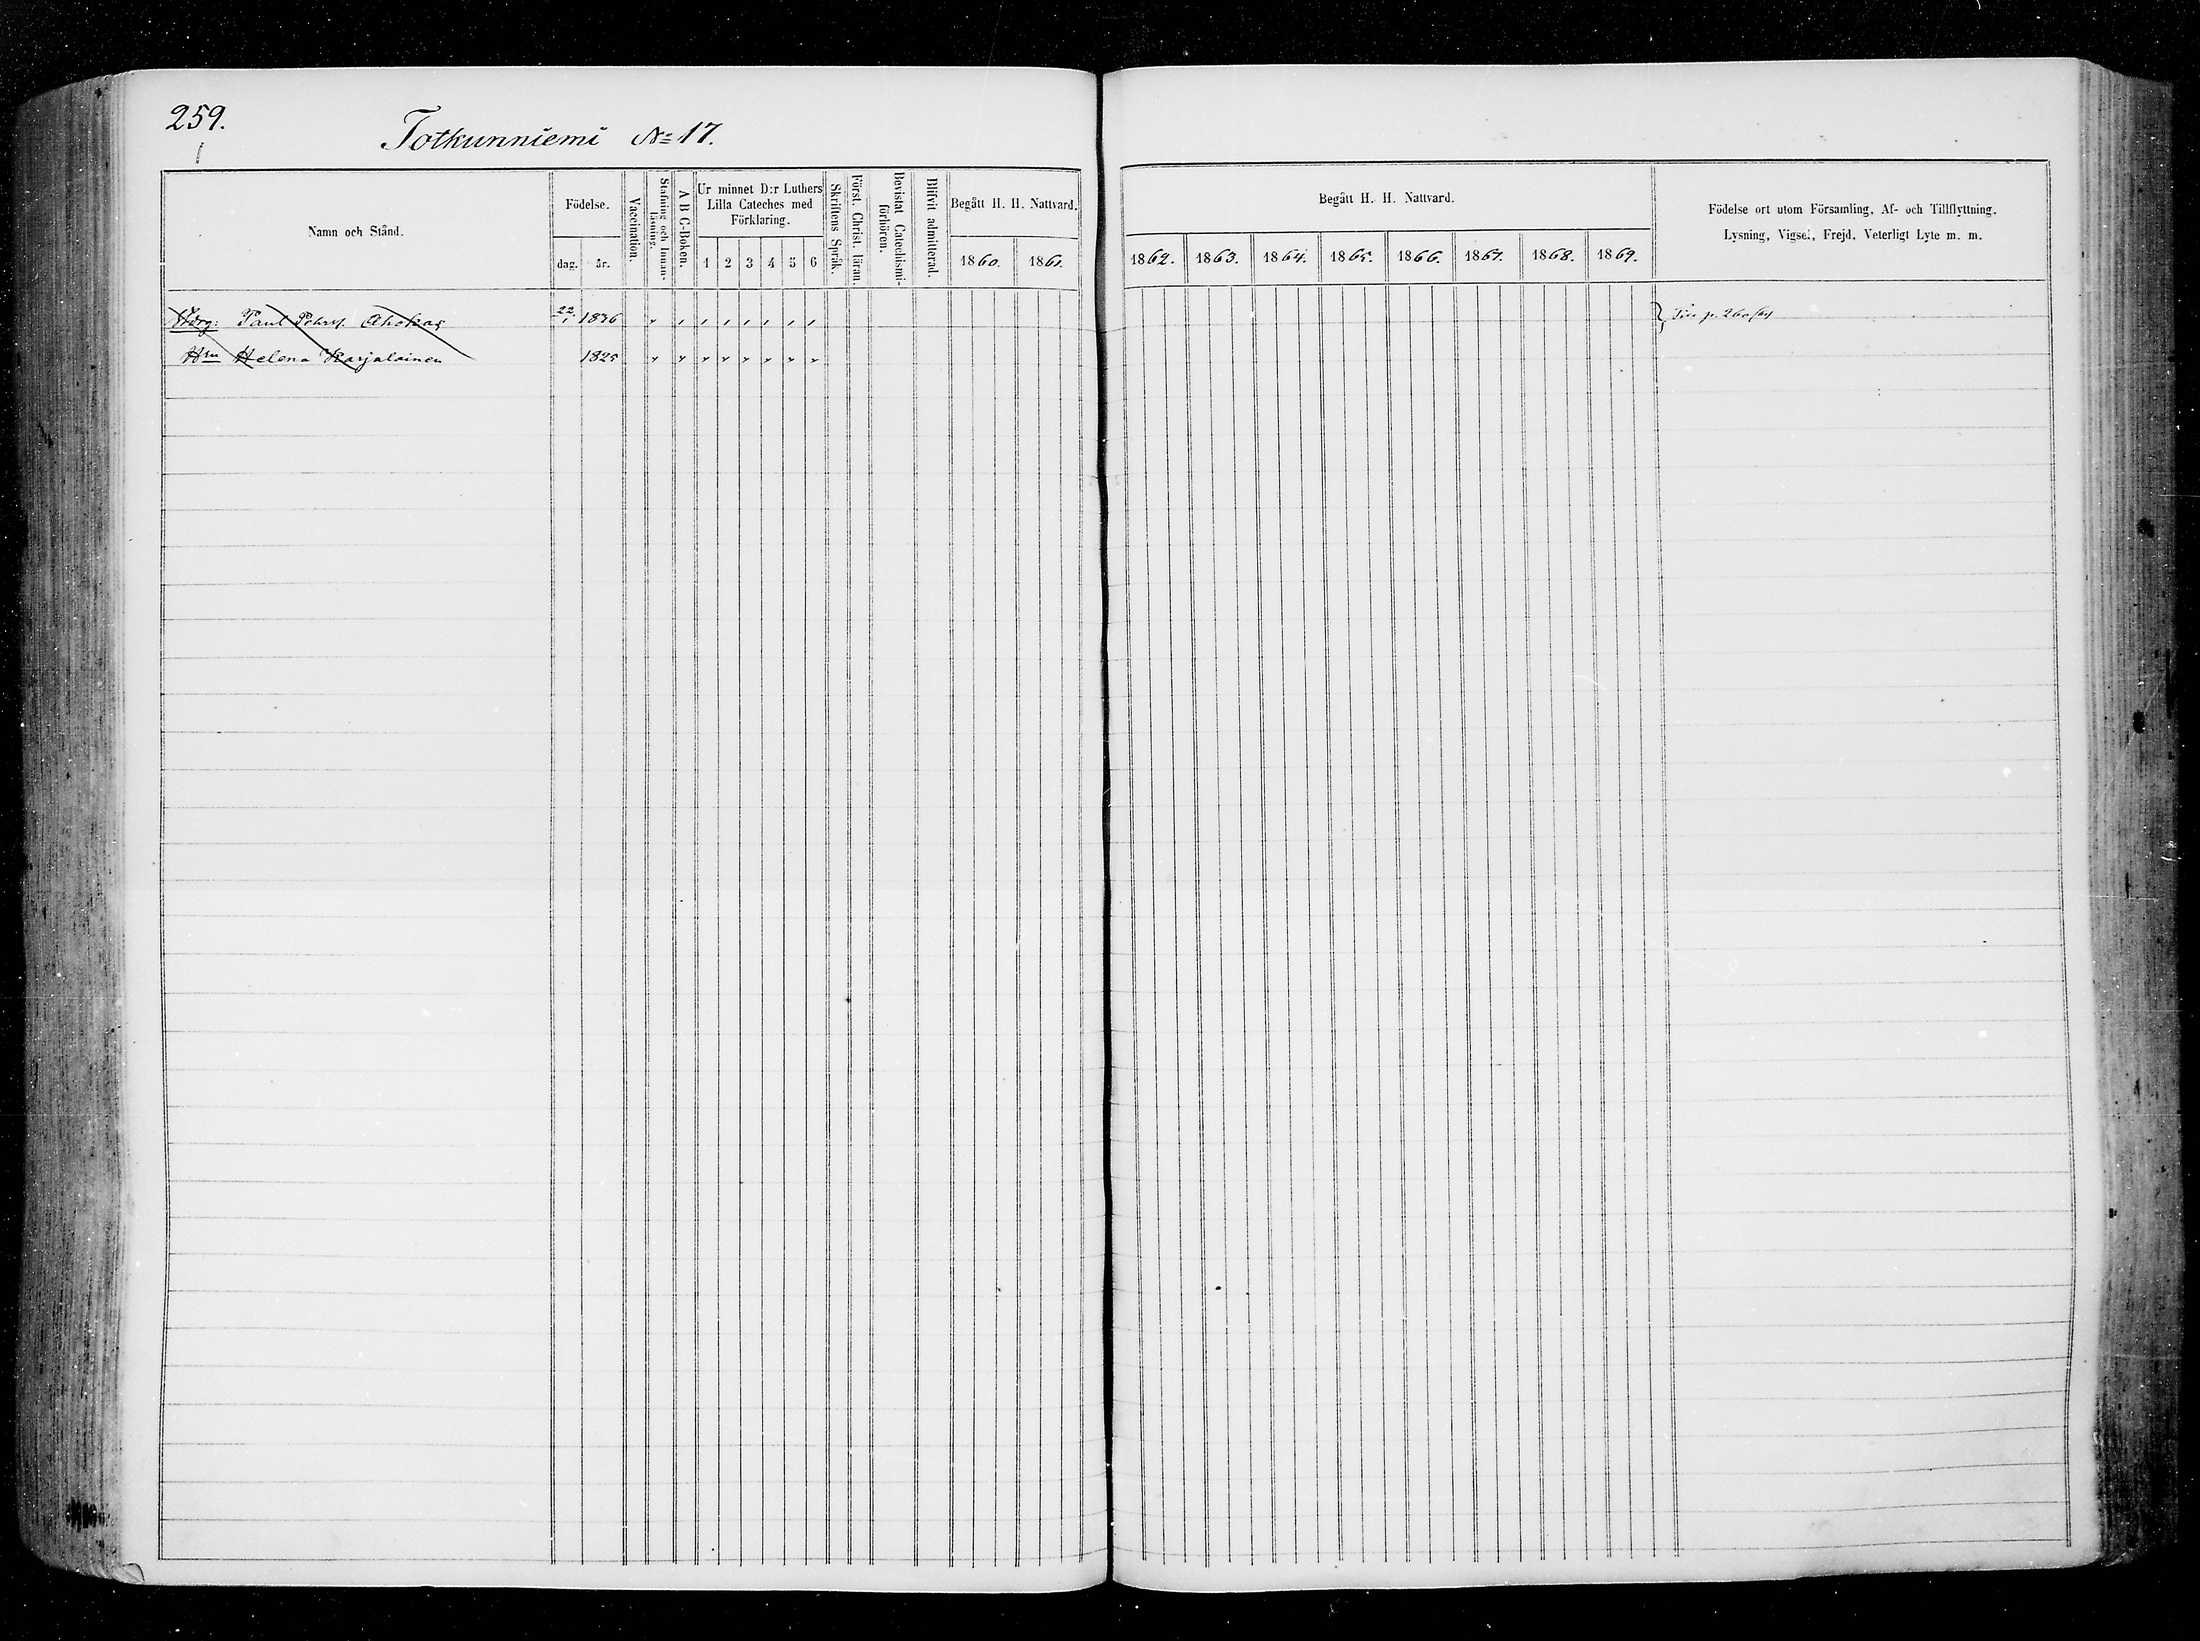 259.
Totkunniemi № 17.
Namn och Stånd.
Födelse.
dag.
år.
Vaccination.
Stafning och Innan-läsning.
A B C-Boken.
Ur minnet D:r Luthers
Lilla Cateches med
Förklaring.
1 2 3 4 5 6
Skriftens Språk.
Först. Christ. läran.
Bevistat Catechismi-förhören.
Blifvit admitterad.
Begått H. H. Nattvard.
1860. 1861.
Begått H. H. Nattvard.
1862. 1863. 1864. 1865. 1866. 1867. 1868. 1869.
Födelse ort utom Församling, Af- och Tillflyttning.
Lysning, Vigsel, Frejd, Veterligt Lyte m. m.
Paul Pehrss. Ahokas 22/1 1836 p. 260/61
Hru Helena Karjalainen 1825